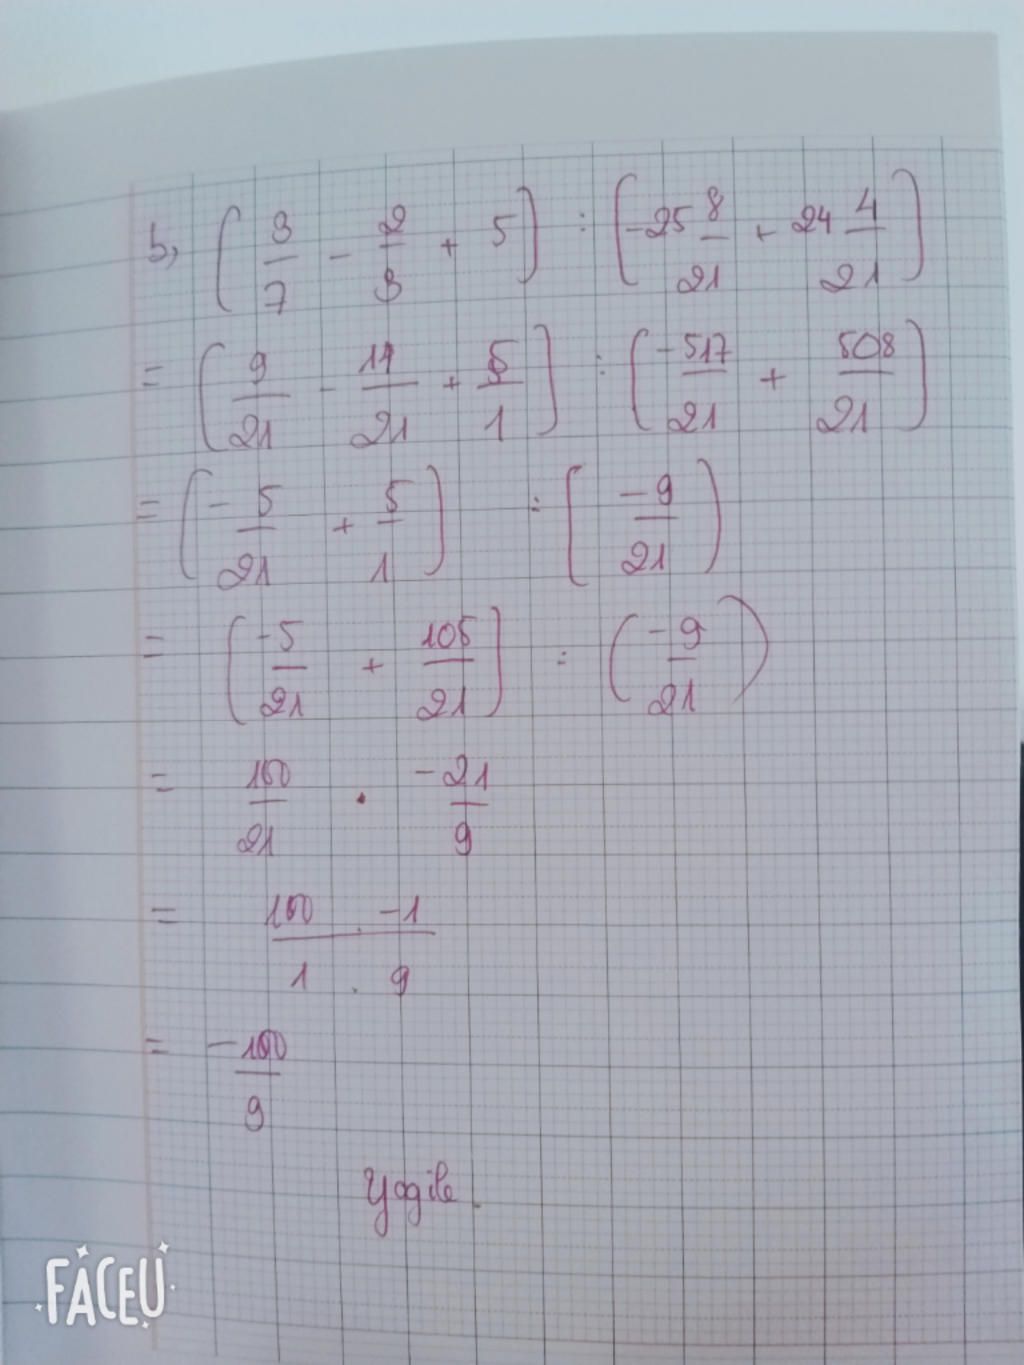 b, ( 3/7 - 2/3 + 5 ) : ( -25 8/21 + 24 4/21 )
= ( 9/21 - 14/21 + 5/1 ) : ( -517/21 + 508/21 )
= ( -5/21 + 5/1 ) : ( -9/21 )
= ( -5/21 + 105/21 ) : ( -9/21 )
= 100/21 . -21/9
= 100 . -1 / 1 . 9
= -100/9
FACEU